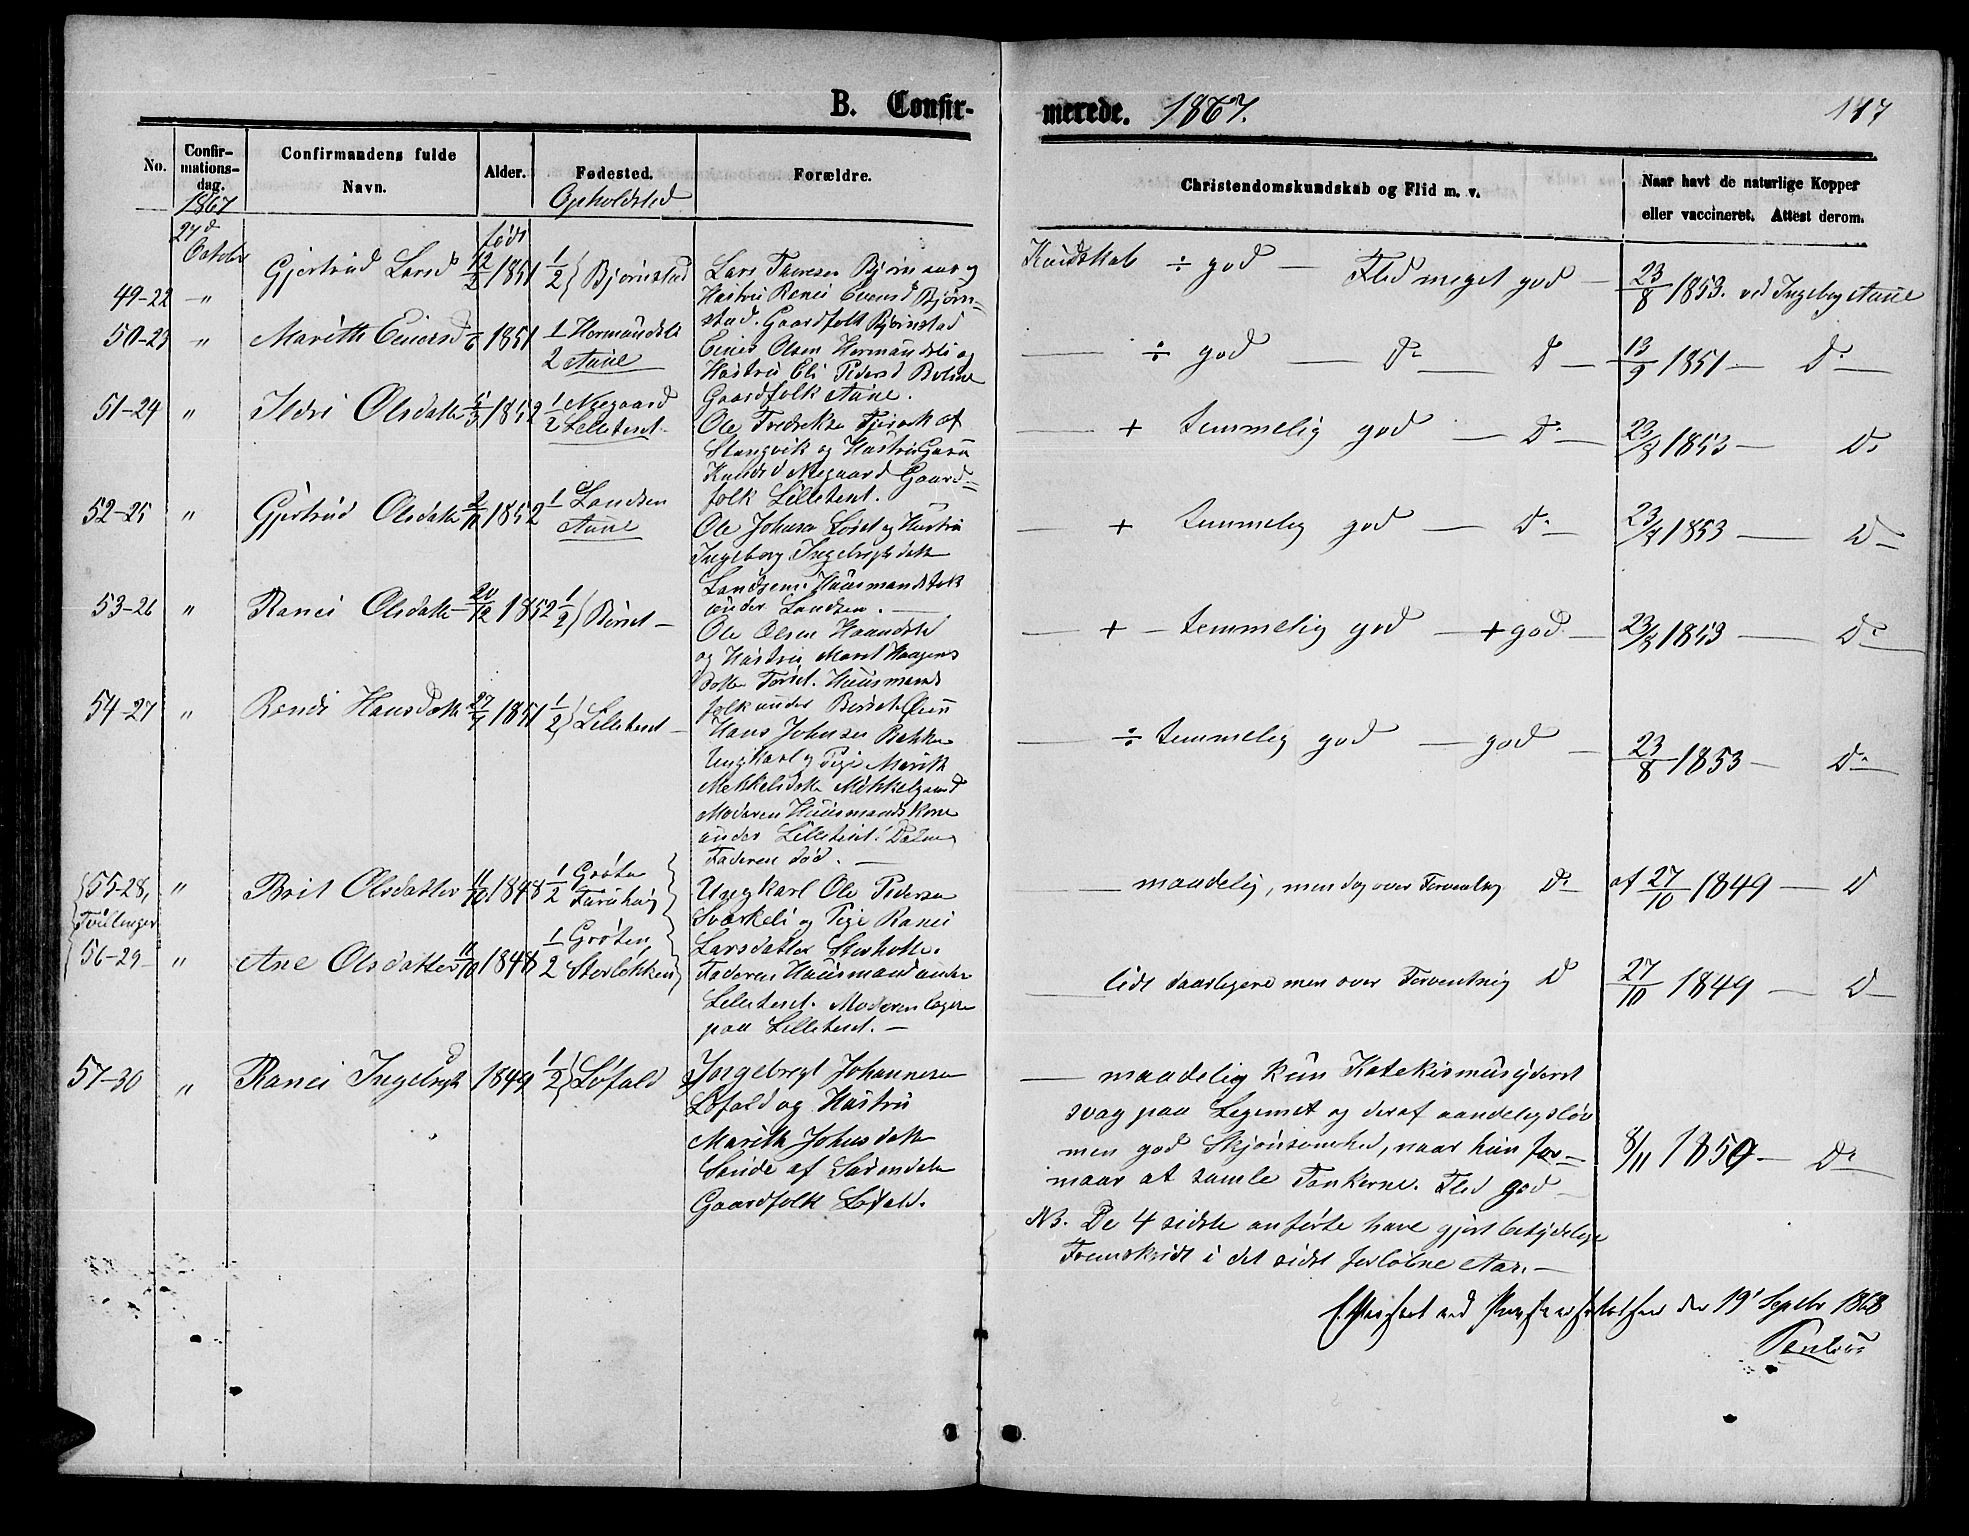 B. Confir-
merede. 1867.
No.
Confir-
mations-
dag.
Confirmandens fulde
Navn.
Alder.
Fødested.
Opholdsted
Forældre.
Christendomskundskab og Flid m. v.
Naar havt de naturlige Kopper
eller vaccineret. Attest derom.
1867
27d
October
født
49-22 " Gjertrud Larsd 12/2 1851 1/2 } Bjørnstad
Lars Bjørnaas og
Hustru Ranei Einersd Bjørn-
stad. Gaardfolk Bjørnstad
Kundskab ÷ god — Flid meget god — 23/8 1853. ved Ingebrg Aune
50-23 " Marith Einersd 1851 1 Hermandsli
2 Aune
Einer Olsen Hermandsli og
Hustru Eli Pedersd Bolme
Gaardfolk Aune.
— ÷ god — Do — D — 13/9 1851 — Do —
51-24 " Ildri Olsdatter 1852 1 Negaard
2 Lilleteret
Ole Fredriksen af
Stangvik og Hustru Guru
Knudsd Negaard Gaard=
folk Lilleteret.
— + temmelig god — Do — 23/8 1853 — Do
52-25 " Gjertrud Olsdatter 1852 1 Landsen
2 Aune
Ole Johnsen og Hustru
Ingeborg Ingebrigtsdatter
Landsem. Huusmandsfolk
under Landsem. —
— + temmelig god — Do — 23/8 1853 — Do
53-26 " Ranei Olsdatter 20/12 1852 1/2 } Børset —
Ole Olsen
og Hustru Maret Haagens
datter Tøret. Huusmands
folk under Børset
— + — temmelig god — + god — 23/8 1853 — Do
54-27 " Randi Hansdatter 1851 1/2 } Lilleteret —
Hans Johnsen Bakken
Ungkarl og Pige Marith
Mekkelsdatter Mekkelgaard
Moderen Huusmandskone
under Lilleteret.
Faderen død. —
— ÷ temmelig god — god — 23/8 1853 — Do
55-28, " Brit Olsdatter 11/10 1848 1 Grøten
2 Furuhaug
Tvillinger
Ungkarl Ole Pedersen
Sværkeli og Pige Ranei
Larsdatter Storholte.
— maadelig, men dog over Forventng Do af 27/10 1849 — D
56-29 " Ane Olsdatter 11/10 1848 1 Grøten
2 Storløkken
Faderen Huusmand under
Lilleteret. Moderen
paa Lilleteret. —
— lidt daarligere men over Forventning D 27/10 1849 — D —
57-30 " Ranei Ingebrigtsd 1849 1/2 } Løfald
Ingebrigt Johannesen
Løfald og Hustru
Marith Johnsdatter
Sande af Surendalen
Gaardfolk Løfald.
— maadelig kun Katekismus yderst
svag paa Legemet og deraf aandeligsløv
men god Skjønsomhed, naar hun for=
maar at samle Tankerne. Flid god —
8/11 1850 — Do
NB. De 4 sidste anførte have gjort betydelige
Fremskridt i det sidst forløbne Aar. —
den 19' Septbr 1868